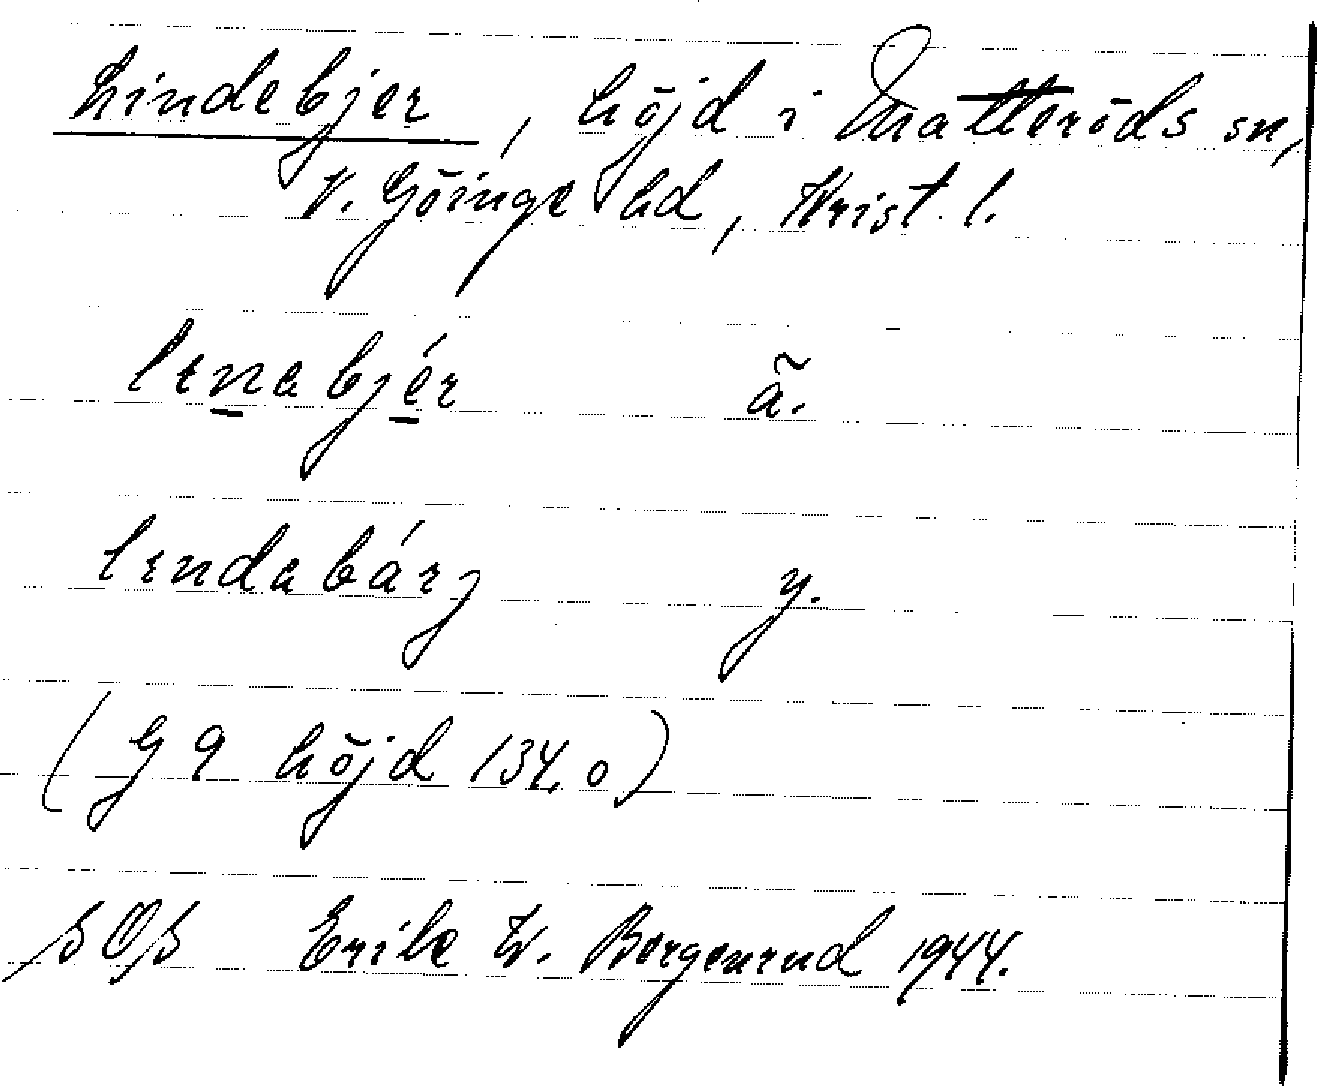 Lindebjer, höjd i Matteröds sn,
V. Göinge hd, Krist. l.
lɩnabjér ã.
lɩndabárj y.
(G 9 höjd 134,0)
SOS Erik W. Bergenrud 1944.